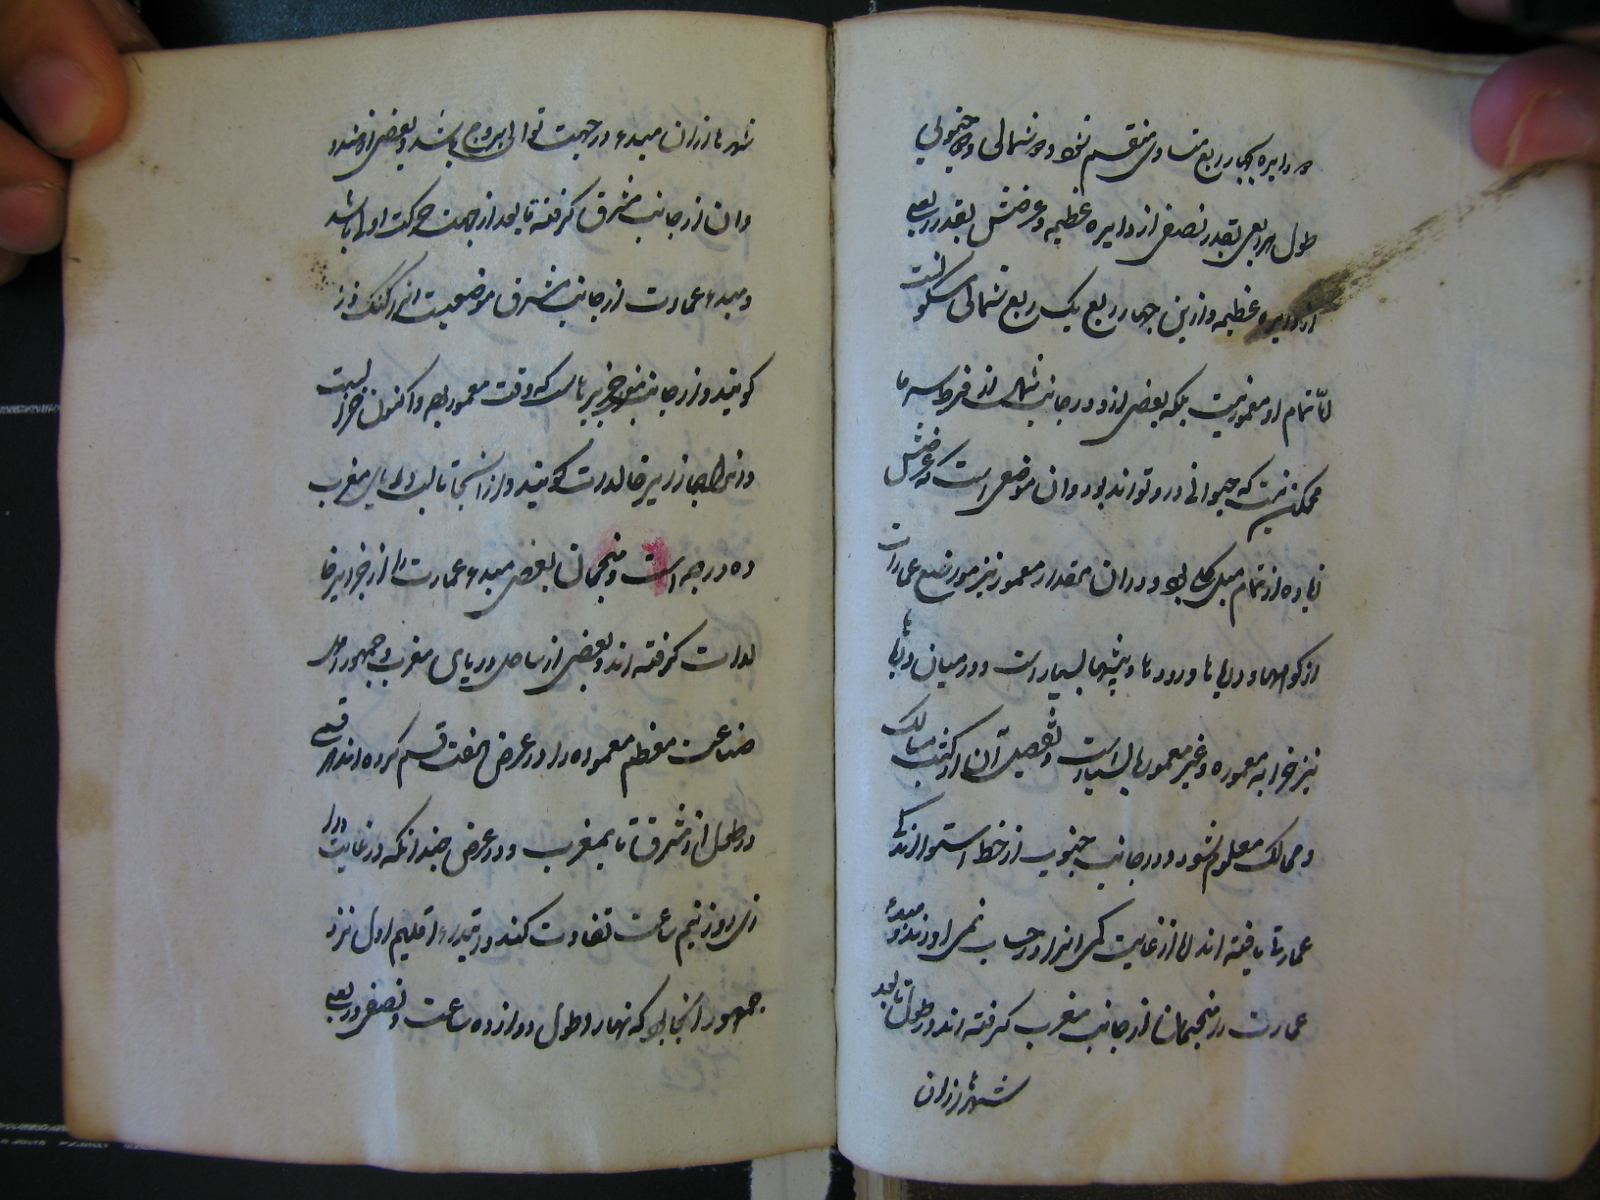 دو دایره بچهار ربع متساوی منقسم شود دو شمالی و دو جنوبی
طول هر ربعی بقدر نصفی از دایره عظیمه و عرضش بقدر ربعی
از دایره عظیمه و ازین چهار ربع یک ربع شمالی مسکونست
امّا تمام او معمور نیست بلکه بعضی ازو در جانب شمال از فرط سرما
ممکن نیست که حیوانی درو تواند بود و ان موضعی است که عرضش
زیاده از تمام میل کلی بود و در ان مقدار معمور نیز مواضع عمارات
از کوهها و دریاها و رودها و بیشها بسیار است و در میان دریاها
نیز خرابه معموره و غیر معموره بسیار است و تفصیل آن از کتب مسالک
و ممالک معلوم شود و در جانب جنوب از خط استوا اندکی
عمارتها یافته اند اما از غایت کمی انرا در حساب نمی اورند و مبدء
عمارت منجمان از جانب مغرب گرفته اند در طول تا بعد
شهرها ازان
شهرها ازان مبدء در جهت توالی بروج باشد و بعضی از هند
و ان از جانب مشرق گرفته تا بعد از جهت حرکت اولی باشد
و مبدء عمارت از جانب مشرق موضعیست انرا کنک دز
گویند و از جانب مغرب جزیرهاست که وقتی معمور بوده و اکنون خرابست
و انرا جزایر خالدات گویند و از انجا تا لب دریای مغرب
ده درجه است و منجمان بعضی مبدء عمارت را از جزایر خا
لدات گرفته اند و بعضی از ساحل دریای مغرب و جمهور اهل
صناعت معظم معموره را در عرض بهفت قسم کرده اند هر قسمی
در طول از مشرق تا بمغرب و در عرض چندانکه در غایت درا
زی روز نیم ساعت تفاوت کند و مبدء اقلیم اول نزد
جمهور انجا بود که نهار اطول دوازده ساعت و نصف و ربعی